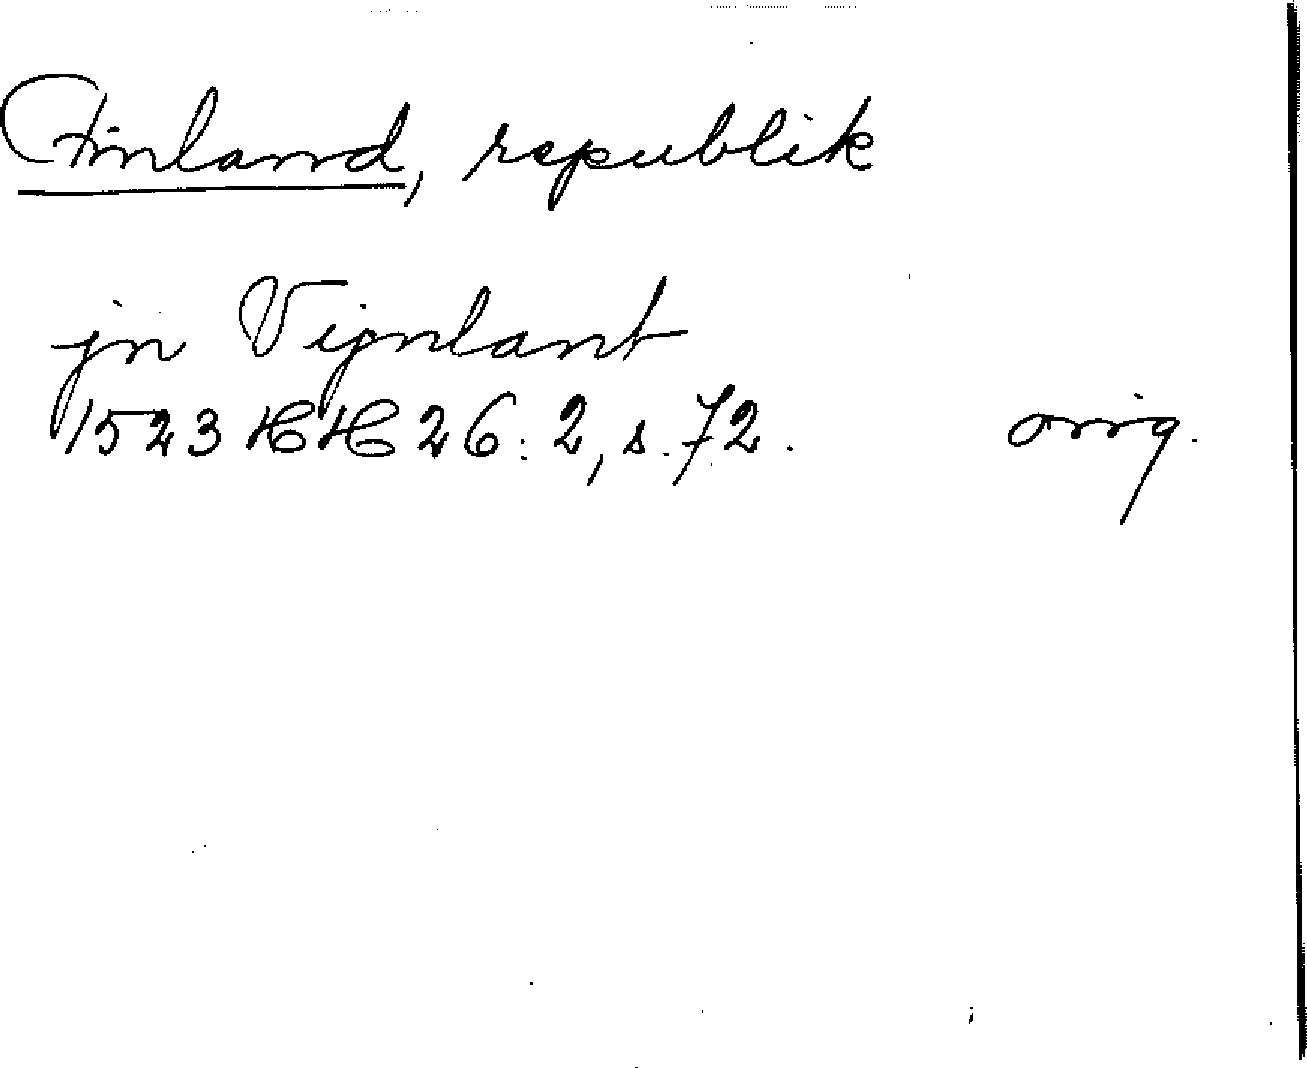 Finland, republik
jn Vijnlant
1523 HH 26:2, s. 72. orig.